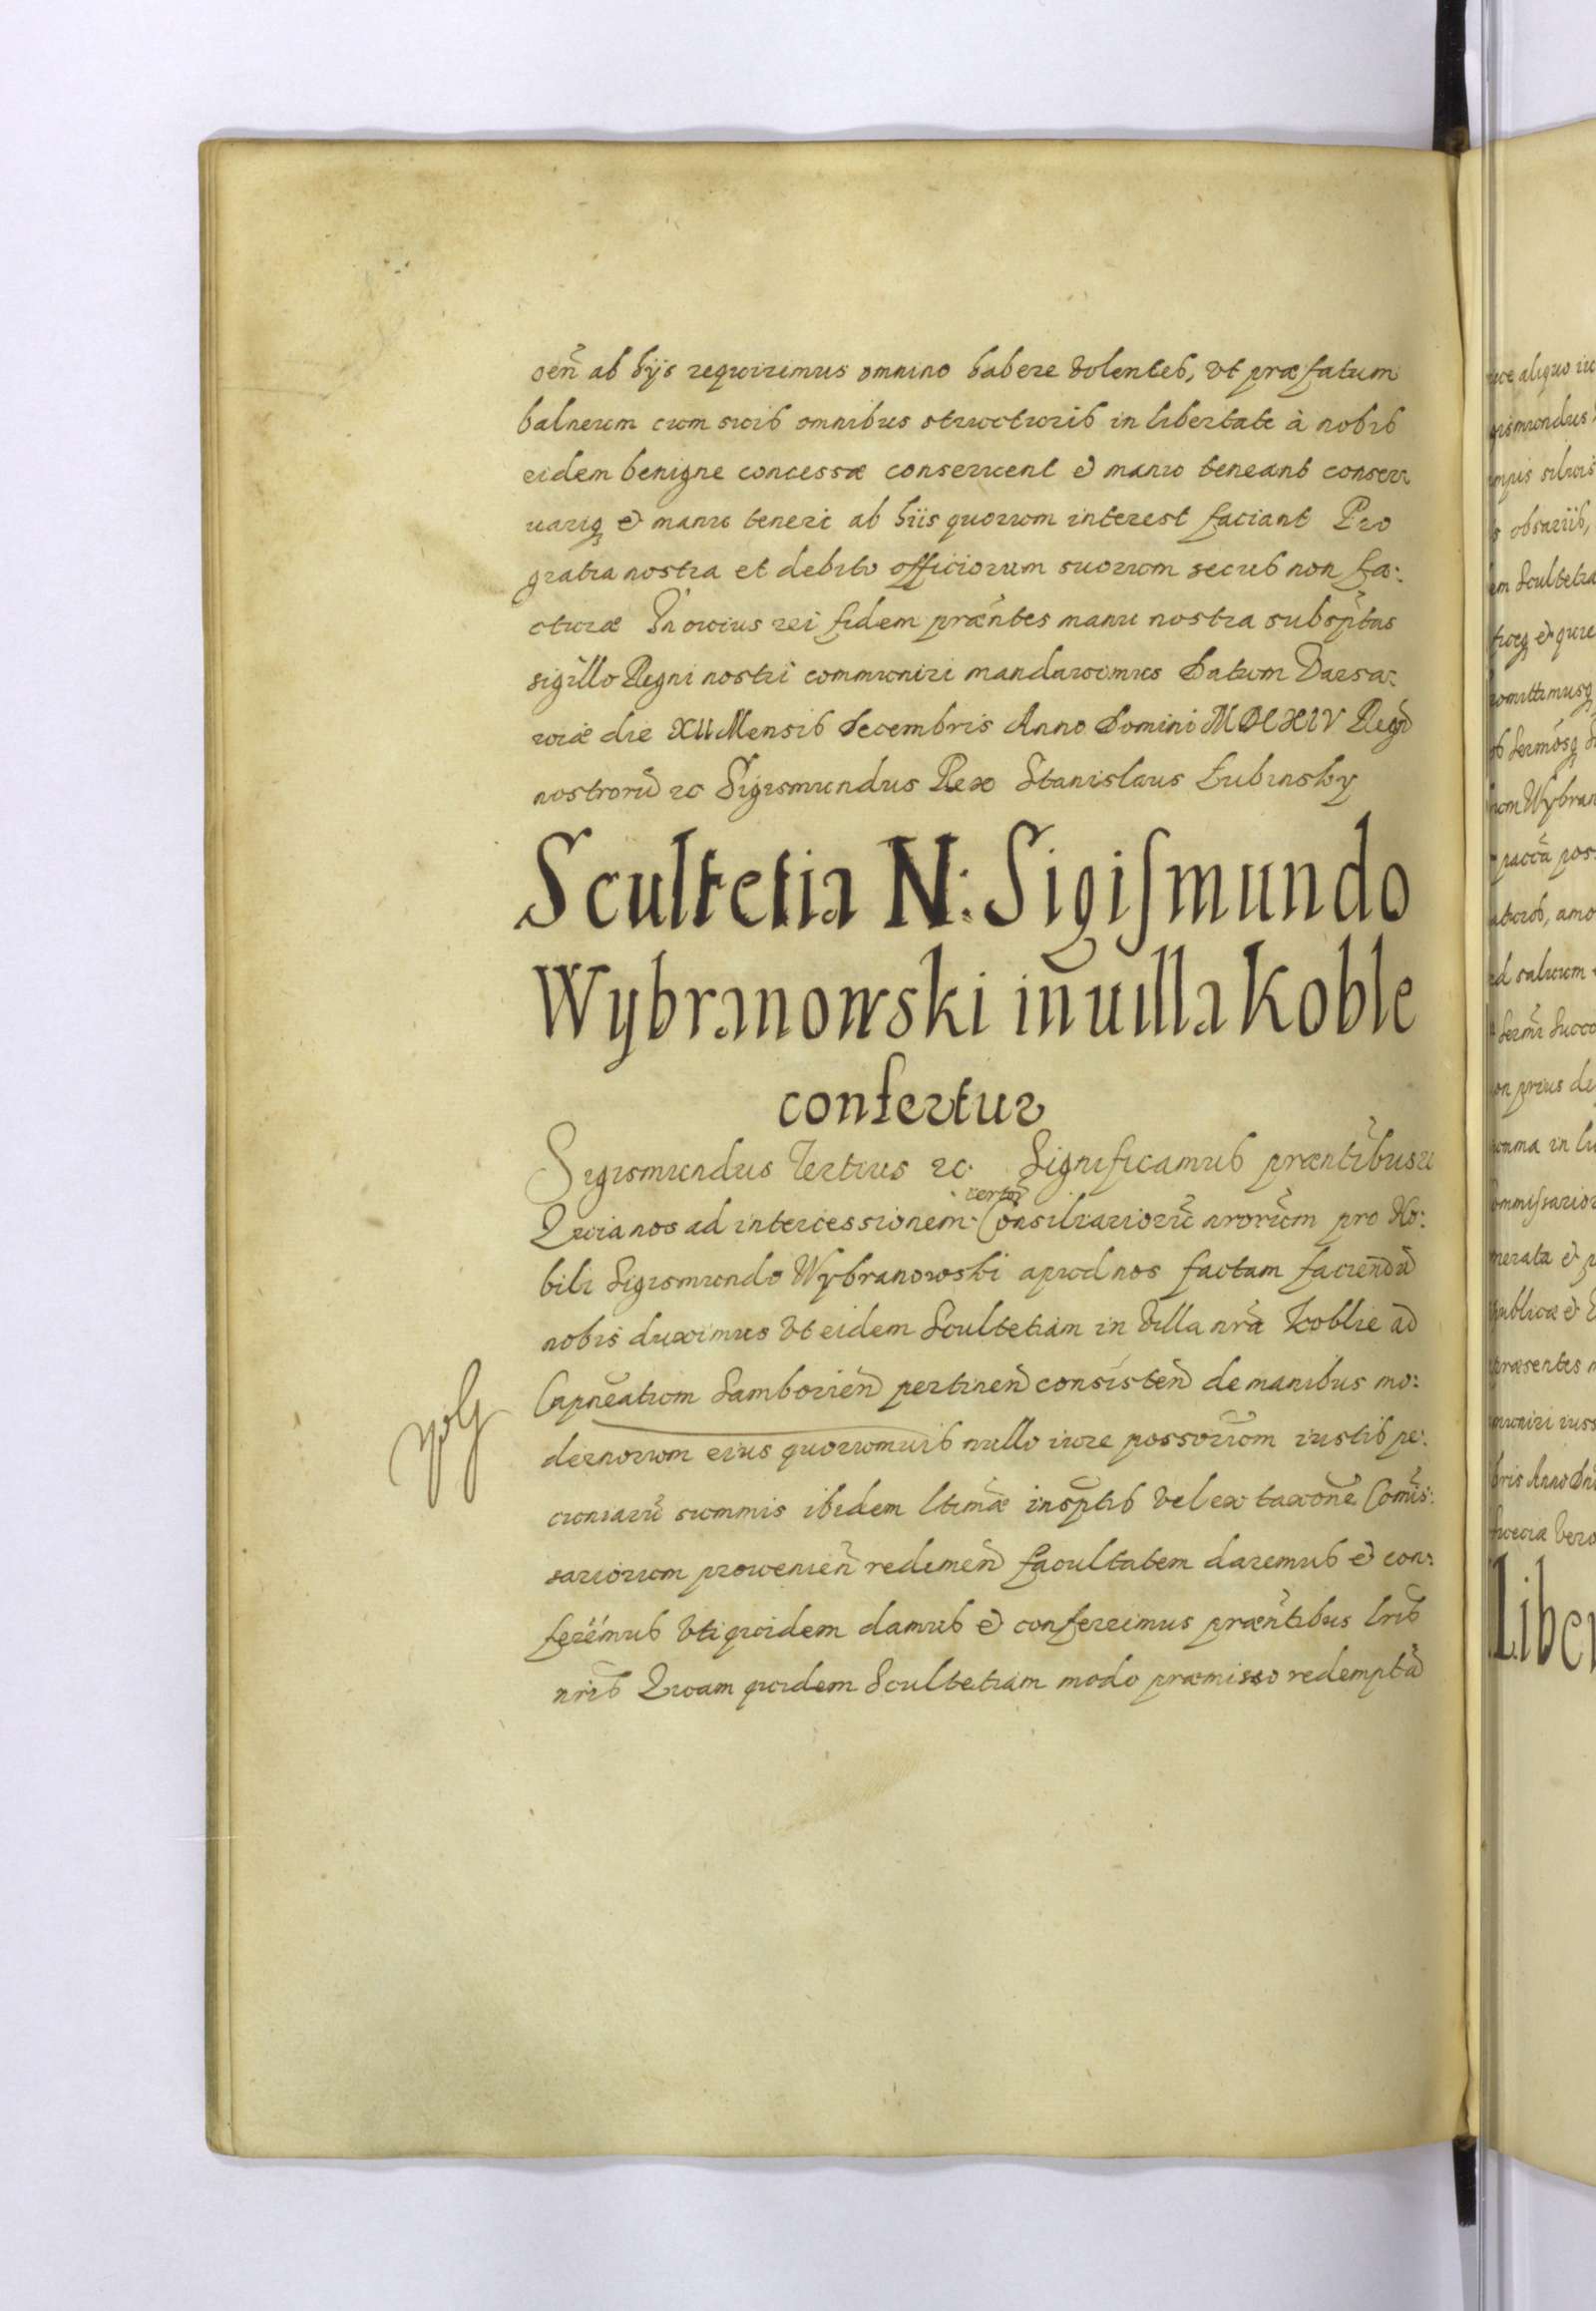 oẽn ab hijs requirimus omnino habere volentes, vt præfatum
balneum cum suis omnibus structuris in libertate à nobis
eidem benigne concessæ conseruent et manu teneant conser:
uariq; et manu teneri ab hiis quorum interest faciant Pro
gratia nostra et debito officiorum suorum secus non fa:
cturæ In cuius rei fidem præñtes manu nostra subsp̃tas
sigillo Regni nostri communiri mandauimus Datum Varsa:
uiæ die XII Mensis Decembris Anno Domini MDCXIV Regñ
nostrorũ ꝛc Sigismundus Rex Stanislaus Łubinsky
Scultetia N: Sigismundo
Wybranowski in uilla Koble
confertur
Sigismundus Tertius ꝛc. Significamus præntĩbus ꝛc
certor̃
Quia nos ad intercessionem Consiliariorũ nrorũm pro No:
bili Sigismundo Wybranowski apud nos factam faciendũ
nobis duximus vt eidem Scultetiam in Villa nrã Koblie ad
Capnẽatum Samborieñ pertineñ consisteñ de manibus mo:
dernorum eius quorumuis nullo iure possorũm iustis pe:
cuniarũ summis ibidem ltimæ̃ insp̃tis vel ex taxoñe Comĩs:
sariorum prouenieñ redimeñ facultatem daremus et con:
ferremus vti quidem damus et conferrimus præñtibus lrĩs
nrĩs Quam quidem Scultetiam modo præmisso redemptã